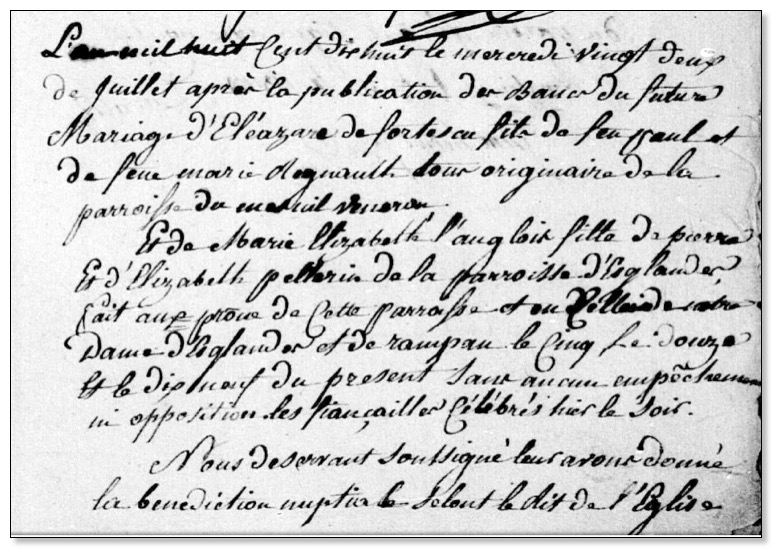 L'an mil huit Cent dix huit le mercredi vingt deux
de Juillet après la publication des Bancs du future
Mariage d'Eléazare de fortescu fils de feu paul et
de feue marie Regnault tous originaire de la
parroisse du mesnil veneron
Et de Marie Elizabeth l'anglois fille de pierre
Et d'Elizabeth pellerin de la parroisse d'Esglandes
fait aux prone de Cette parroisse et en Celle de notre
Dame d'Esglandes et de rampan le Cinq le douze
Et le dix neuf du present sans aucun empêchement
ni opposition les fiançailles Célébrés hier le soir.
Nous deservant soussigné leur avons donné
la benediction nuptiale selont le dit de l'Eglise